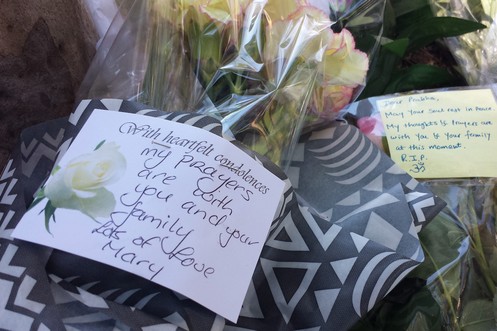 With heartfelt condolences
my Prayers
are with
you and your
family
Lots of Love
Mary
May Your Soul rest in Peace
My thoughts & Prayers are
with You & Your family
at this moment.
R.I.P.
ॐ